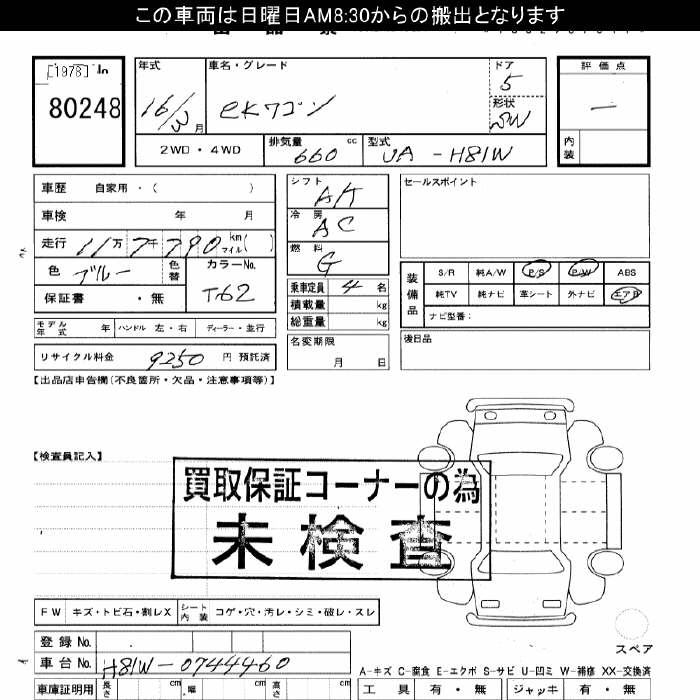 この車両は日曜日AM8:30からの搬出となります
[1978]
80248
年式 車名・グレード ドア 評価点
16/3月 eKワゴン 5
形状 SW
一
2WD・4WD 排気量 660 cc 型式 UA-H81W 内装
車歴 自家用・( )
シフト AT
セールスポイント
車検 年 月
冷房 AC
走行 11万7千790 km マイル( )
燃料 G
色 ブルー 色替 カラーNo. T62
装備品 S/R 純A/W P/S P/W ABS
乗車定員 4名
純TV 純ナビ 革シート 外ナビ エアB
保証書 ・無
積載量 kg
ナビ型番:
総重量 kg
モデル年式 年 ハンドル 左・右 ディーラー・並行
名変期限 月 日
後日品
リサイクル料金 9250 円 預託済
【出品店申告欄(不良箇所・欠品・注意事項等)】
【検査員記入】
買取保証コーナーの為
未検査
FW キズ・トビ石・割レX シート内装 コゲ・穴・汚レ・シミ・破レ・スレ
スペア
登録No.
車台No. H81W-0744460
A-キズ C-腐食 E-エクボ S-サビ U-凹ミ W-補修 XX-交換済
車庫証明用 長さ cm 幅 cm 高さ cm 工具 有・無 ジャッキ 有・無